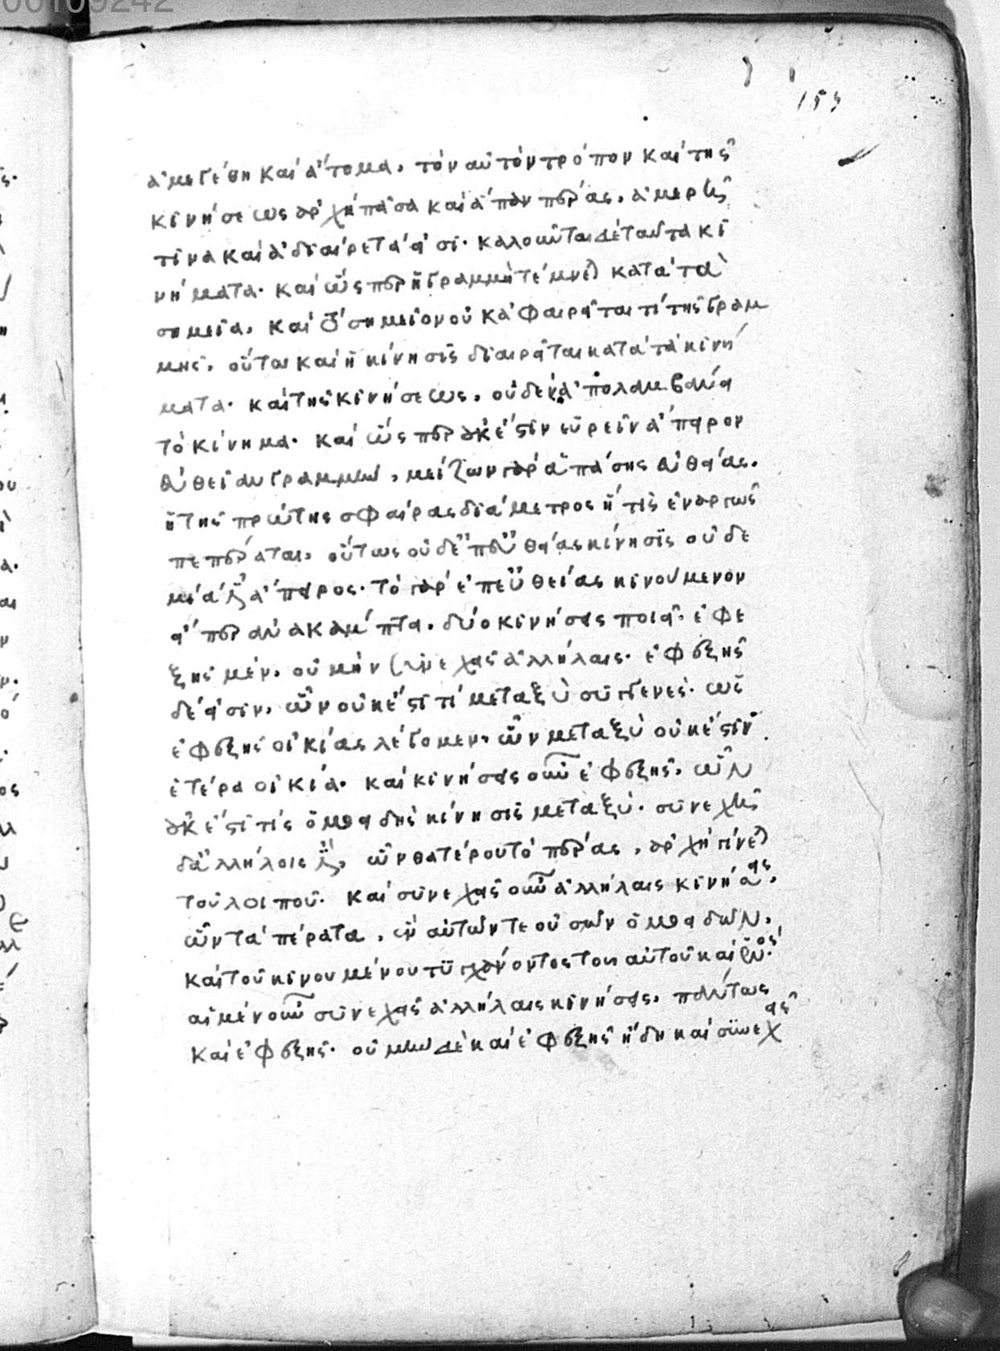 00109242
153
ἀμεγέθη καὶ ἄτομα. τὸν αὐτὸν τρόπον καὶ τῆς
κινήσεως ἀρχὴ πᾶσα καὶ ἅπαν πέρας, ἀμερῆ
τινα καὶ ἀδιαίρετά εἰσι. καλοῦνται δὲ ταῦτα κι
νήματα. καὶ ὥσπερ ἡ γραμμὴ τέμνεται κατὰ τὰ
σημεῖα, καὶ σημεῖον οὐκ ἀφαιρεῖται τι τῆς γραμ
μῆς, οὕτω καὶ ἡ κίνησις διαιρεῖται κατὰ τὰ κινή
ματα. καὶ τῆς κινήσεως, οὐδὲν ἀπολαμβάνει
τὸ κίνημα. καὶ ὥσπερ οὐκ ἔστιν εὑρεῖν ἄπειρον
εὐθεῖαν γραμμὴν, μείζων γὰρ ἁπάσης εὐθείας.
ἡ τῆς πρώτης σφαίρας διάμετρος ἥτις ἐναργῶς
πεπέραται, οὕτως οὐδὲ ἐπ' εὐθείας κίνησις οὐδε
μία ἐστὶν ἄπειρος. τὸ γὰρ ἐπ' εὐθείας κινούμενον
εἴπερ ἀνακάμπτει, δύο κινήσεις ποιεῖ. ἐφε
ξῆς μὲν, οὐ μὴν συνεχεῖς ἀλλήλαις. ἐφεξῆς
δέ εἰσιν, ὧν οὐκ ἔστι τί μεταξὺ συγγενές. ὡς
ἐφεξῆς οἰκίας λέγομεν, ὧν μεταξὺ οὐκ ἔστιν
ἑτέρα οἰκία. καὶ κινήσεις οὖν ἐφεξῆς, ὧν
οὐκ ἔστι τις ὁμοειδὴς κίνησις μεταξύ. συνεχῆ
δ' ἀλλήλοις ἐστὶν, ὧν θατέρου τὸ πέρας, ἀρχὴ γίνεται
τοῦ λοιποῦ. καὶ συνεχεῖς οὖν ἀλλήλαις κινήσεις,
ὧν τὰ πέρατα, ἓν αὐτῶν τε οὐσῶν ὁμοειδῶν,
καὶ τοῦ κινουμένου τυγχάνοντος τοῦ αὐτοῦ καὶ ἑνός.
αἱ μὲν οὖν συνεχεῖς ἀλλήλαις κινήσεις, πάντως
καὶ ἐφεξῆς. οὐ μὴν δὲ καὶ ἐφεξῆς ἤδη καὶ συνεχεῖς